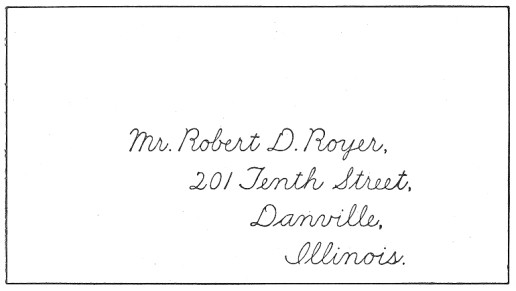 Mr. Robert D. Royer,
201 Tenth Street,
Danville,
Illinois.